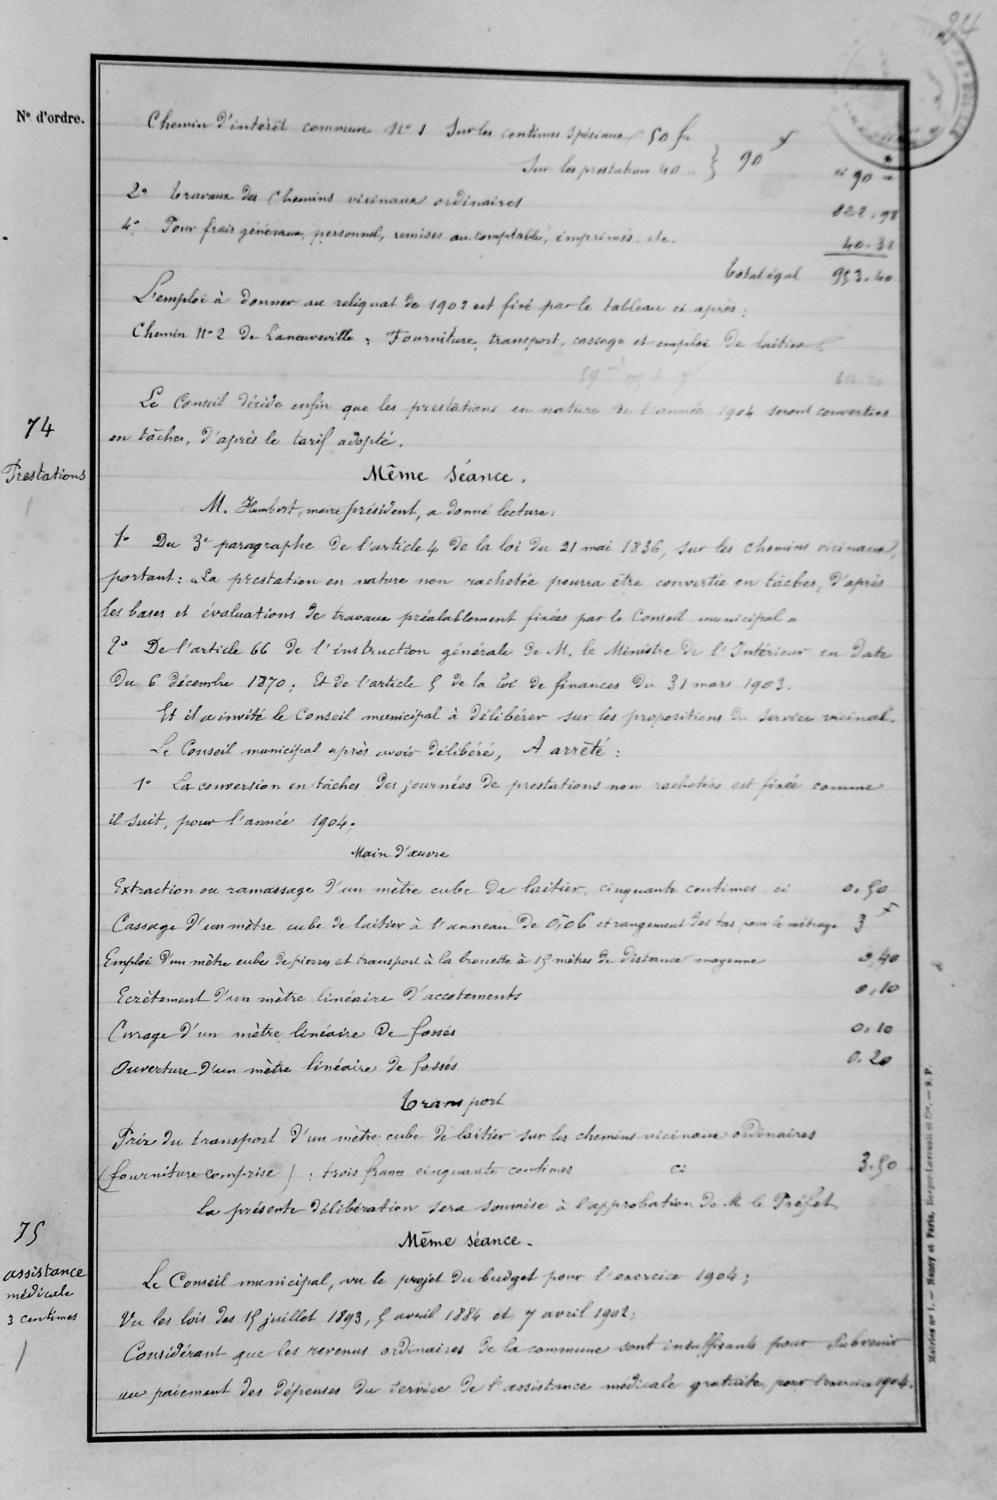 24
N° d'ordre.
Chemin d'intérêt commun N° 1 Sur les centimes spéciaux 50 f
Sur les prestations 40 " } 90 f
" 90 "
2° Travaux des Chemins vicinaux ordinaires 822.98
4° Pour frais généraux, personnel, remises au comptable, imprimés, etc. 40.32
Total égal 953.40
L'emploi à donner au reliquat de 1902 est fixé par le tableau ci après :
Chemin N° 2 de Laneuveville : Fourniture, transport, cassage et emploi de laitier
Le Conseil décide enfin que les prestations en nature de l'année 1904 seront converties
en tâches, d'après le tarif adopté.
74
Prestations
Même Séance.
M. Humbert, maire président, a donné lecture :
1° Du 3e paragraphe de l'article 4 de la loi du 21 mai 1836, sur les chemins vicinaux,
portant : "La prestation en nature non rachetée pourra être convertie en tâches, d'après
les bases et évaluations de travaux préalablement fixées par le Conseil municipal"
2° De l'article 66 de l'instruction générale de M. le Ministre de l'Intérieur en date
du 6 décembre 1870 ; Et de l'article 5 de la loi de finances du 31 mars 1903.
Et il a invité le Conseil municipal à délibérer sur les propositions du service vicinal.
Le Conseil municipal après avoir délibéré, A arrêté :
1° La conversion en tâches des journées de prestations non rachetées est fixée comme
il suit, pour l'année 1904.
Main d'œuvre
Extraction ou ramassage d'un mètre cube de laitier, cinquante centimes ci 0.50
Cassage d'un mètre cube de laitier à l'anneau de 0m06 et rangement des tas pour le métrage 3 f
Emploi d'un mètre cube de pierres et transport à la brouette à 15 mètres de distance moyenne 0,40
Ecrètement d'un mètre linéaire d'accotements 0,10
Curage d'un mètre linéaire de fossés 0.10
Ouverture d'un mètre linéaire de fossés 0.20
Transport
Prix du transport d'un mètre cube de laitier sur les chemins vicinaux ordinaires
(fourniture comprise) : trois francs cinquante centimes ci 3.50
La présente délibération sera soumise à l'approbation de M. le Préfet
75
assistance
médicale
3 centimes
Même séance.
Le Conseil municipal, vu le projet du budget pour l'exercice 1904 ;
Vu les lois des 15 juillet 1893, 5 avril 1884 et 7 avril 1902 ;
Considérant que les revenus ordinaires de la commune sont insuffisants pour subvenir
au paiement des dépenses du service de l'assistance médicale gratuite, pour l'exercice 1904.
Mairies n° 1. — Nancy et Paris, Berger-Levrault et Cie. — S. P.